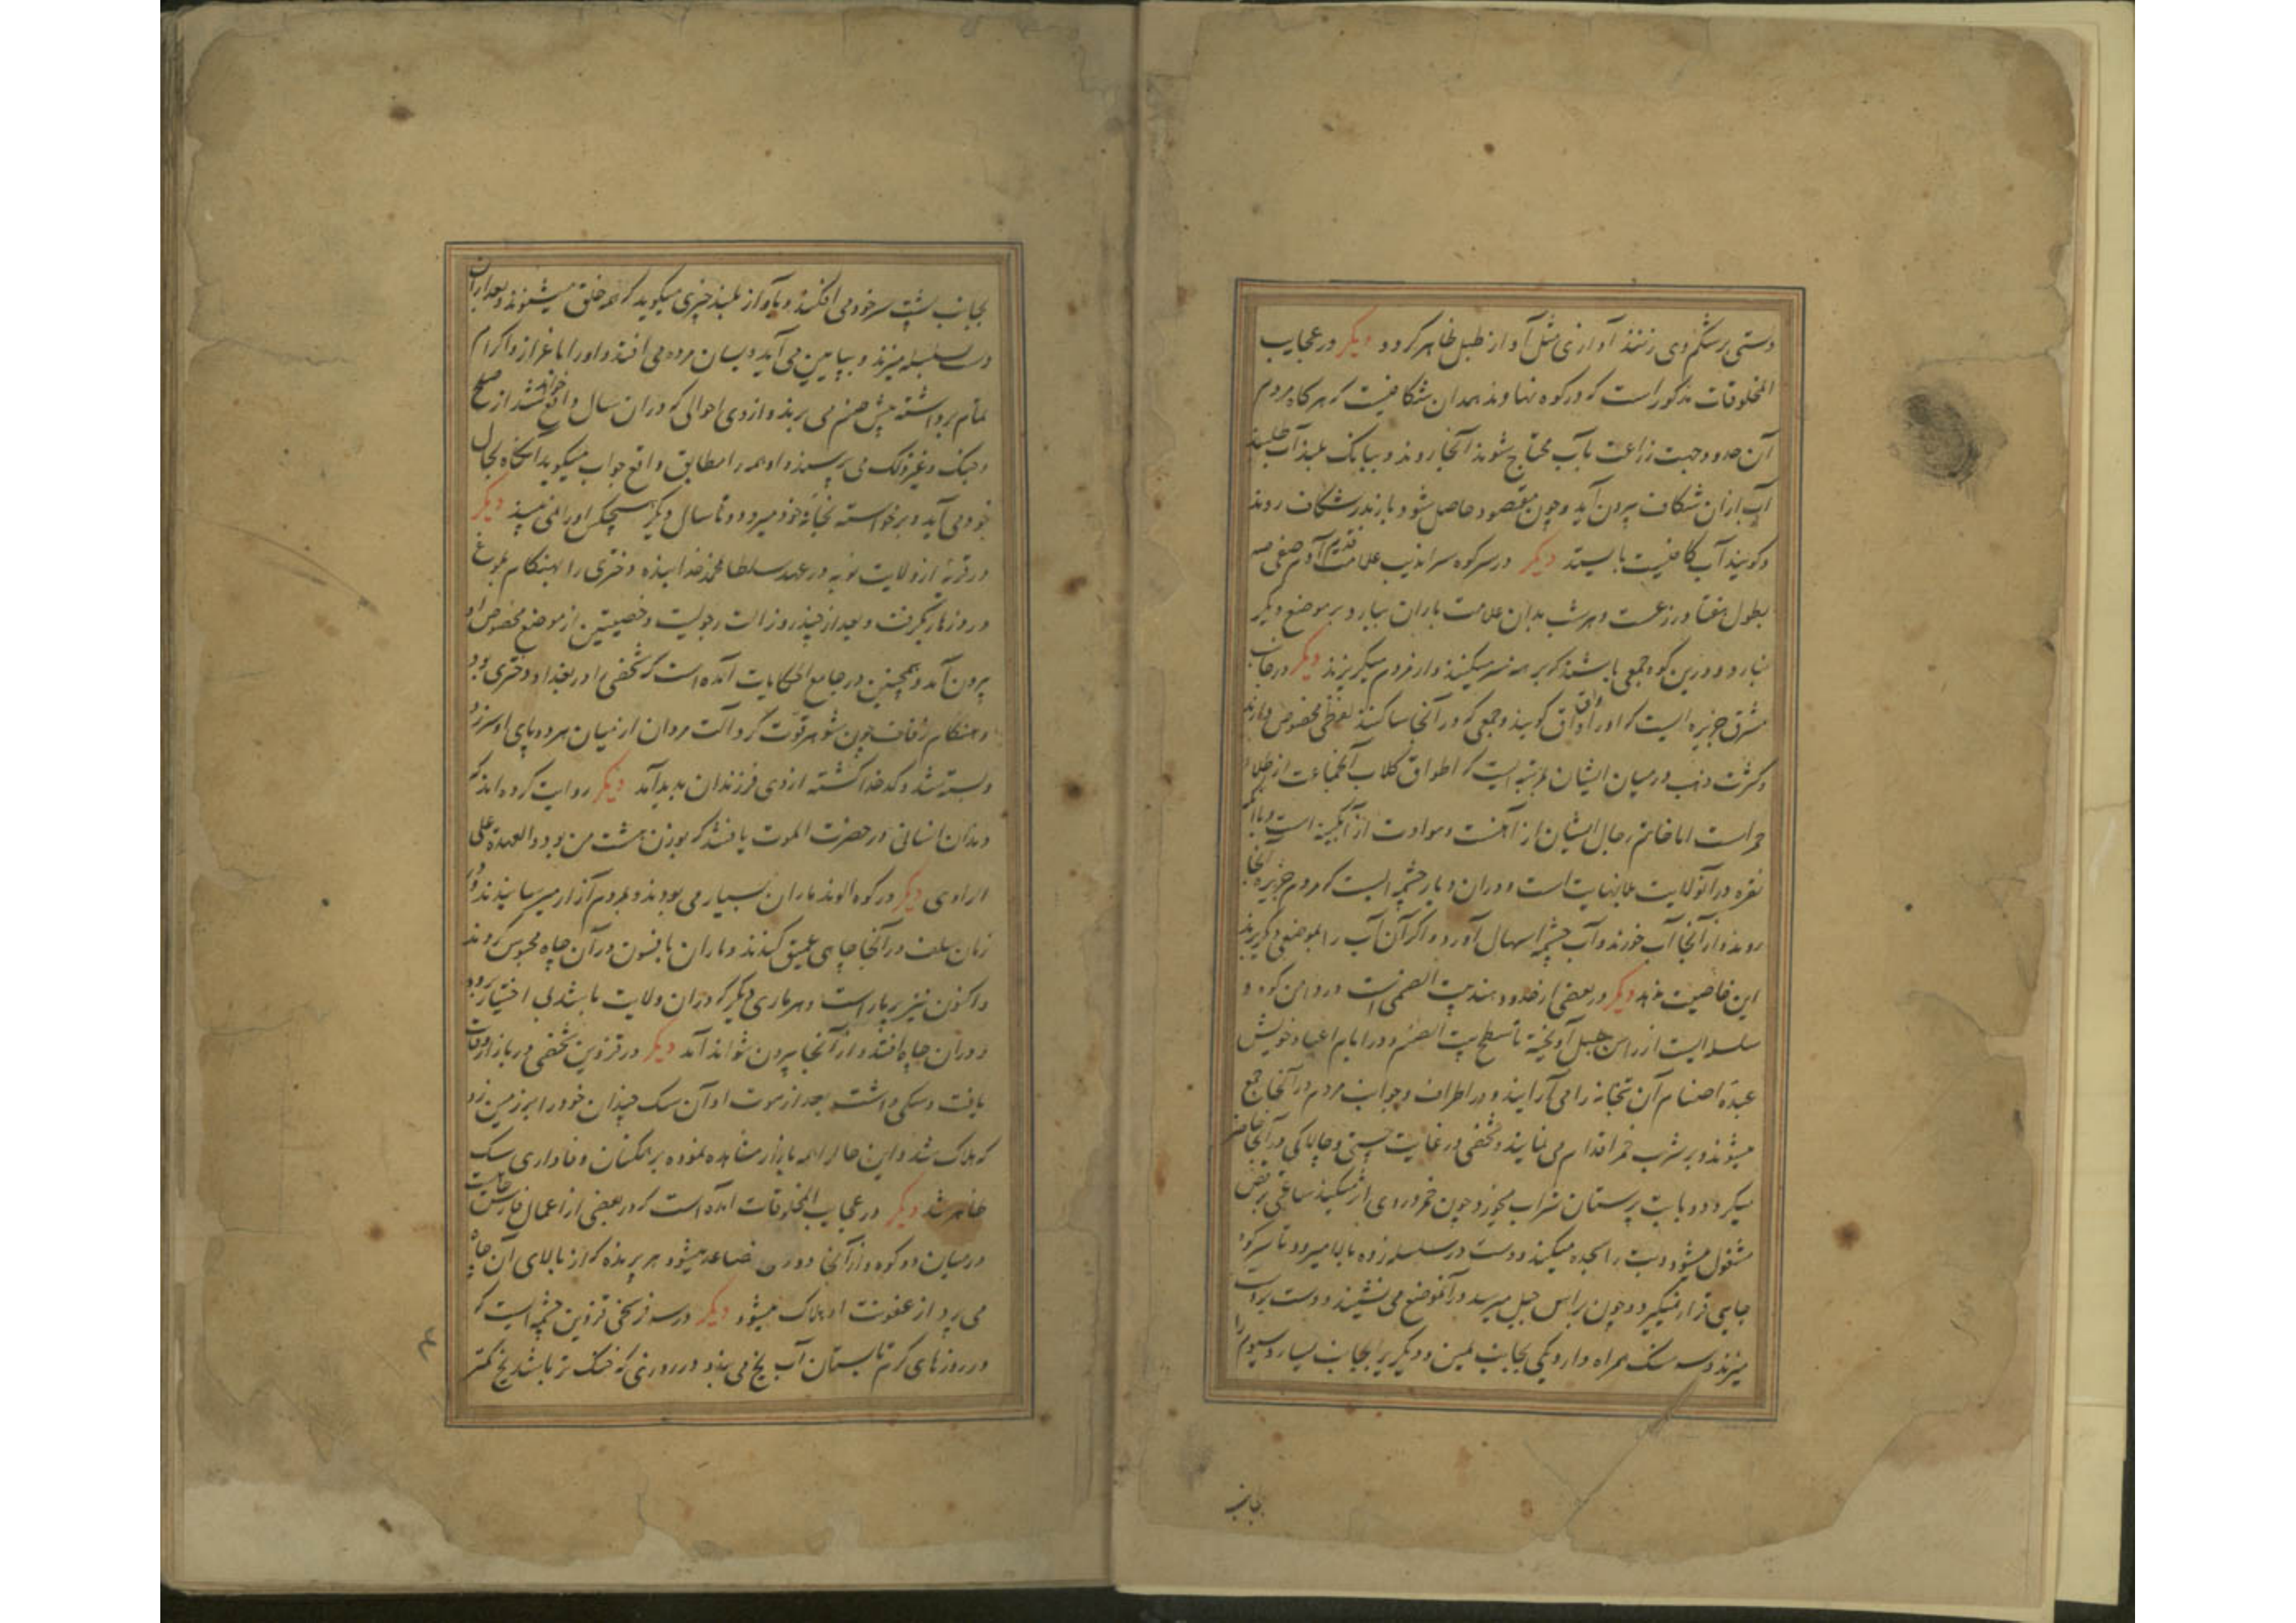 دستی بر شکم وی زنند آوازی مثل آواز طبل ظاهر کردد دیکر در عجایب
المخلوقات مذکور است که در کوه نهاوند همدان شکافیست که هرکاه مردم
آن حدود جهت زراعت بآب محتاج شوند آنجا روند و ببانک بلند آب طلبند
آب ازان شکاف بیرون آید و چون مقصود حاصل شود باز نزد شکاف روند
و کویند آب کافیست بایستد دیکر در سر کوه سراندیب علامت قدم آدم صفی
بطول هفتاد ذرعست و هر شب بدان علامت باران ببارد و بر موضع دیکر
نبارد و درین کوه جمعی باشند که برهنه سر میکنند و از مردم میکریزند دیکر در جانب
مشرق جزیره ایست که او را واق واق کویند و جمعی که در آنجا ساکنند لفظی مخصوص دارند
و کثرت ذهب در میان ایشان بمرتبه ایست که اطواق کلاب آنجماعت از طلاء
حمراست اما خاتم رجال ایشان از آهنست و سوارت از آبکینه است و با آنکه
نقره در آنولایت بینهایت است و دران دیار چشمه ایست که مردم جزیره آنجا
روند و از آنجا آب خورند و آب چشمه اسهال آورد و اکر آن آب را بموضعی دیکر برند
این خاصیت ندهد دیکر در بعضی از حدود هند بیت الصنمی است در دامن کوه و
سلسله ایست از راس جبل آویخته تا سطح بیت الصنم و در ایام اعیاد خویش
عبده اصنام آن بتخانه را می آرایند و در اطراف و جوانب مردم در آنجا جمع
میشوند و بر شرب خمر اقدام می نمایند و شخصی در غایت چستی و چالاکی در آنجا حاضر
میکردد و بابت پرستان شراب میخورد و چون خمر در وی اثر میکند ساعتی برقص
مشغول میشود و بت را سجده میکند و دست در سلسله زده بالا میرود تا سر کوه
جایی قرار نمیکیرد و چون براس جبل میرسد در آنموضع می نشیند و دست بر دست
میزند و سه سنک همراه دارد یکی بجانب یمین و دیکری را بجانب یسار و سیوم را
بجانب
بجانب پشت سر خود می افکند و بآواز بلند چیزی میکوید که همه خلق میشنوند و بعد ازان
دست بسلسله میزند و بپایین می آید و بسان مرده می افتد و او را باعزاز و اکرام
تمام برداشته پیش صنم می برند و از وی احوالی که در ان سال واقع خواهد شد از صلح
و جنک و غیر ذلک می پرسند و او همه را مطابق واقع جواب میکوید آنکاه بحال
خود می آید و برخواسته بخانه خود میرود و تا سال دیکر هیچکس او را نمی بیند دیکر
در قریه از ولایت نوبه در عهد سلطان محمد خدابنده دختری را بهنکام بلوغ
درد زهار بکرفت و بعد از چند روز الت رجولیت و خصیتین از موضع مخصوص او
بیرون آمد و همچنین در جامع الحکایات آمده است که شخصی را در بغداد دختری بود
و هنکام زفاف چون شوهر قوت کرد آلت مردان از میان هر دو پای او سر زد
و بسته شد و کدخدا کشته از وی فرزندان پدید آمد دیکر روایت کرده اند که
دندان انسانی در حضرت الموت یافتند که بوزن هشت من بود و العهدة علی
الراوی دیکر در کوه الوند ماران بسیار می بودند و بمردم آزار میرسانیدند در
زمان سلف در آنجا چاهی عمیق کندند و ماران بافسون در آن چاه محبوس کردند
و اکنون نیز پر مار است و هر ماری دیکر که در ان ولایت باشد بی اختیار رود
در ان چاه افتد و از آنجا بیرون نتواند آمد دیکر در قزوین شخصی در بازار وفات
یافت و سکی داشت بعد از موت او آن سک چندان خود را بر زمین زد
که هلاک شد و این حال را اهل بازار مشاهده نموده بر همکنان وفاداری سک
ظاهر شد دیکر در عجایب المخلوقات آمده است که در بعضی از اعمال فارس چاهیست
در میان دو کوه و از آنجا دودی متصاعد میشود هر پرنده که از بالای آن چاه
می پرد از عفونت او هلاک میشود دیکر در سه فرسخی قزوین چشمه ایست که
در روزهای کرم تابستان آب یخ می بندد در روزی که خنک تر باشد یخ کمتر